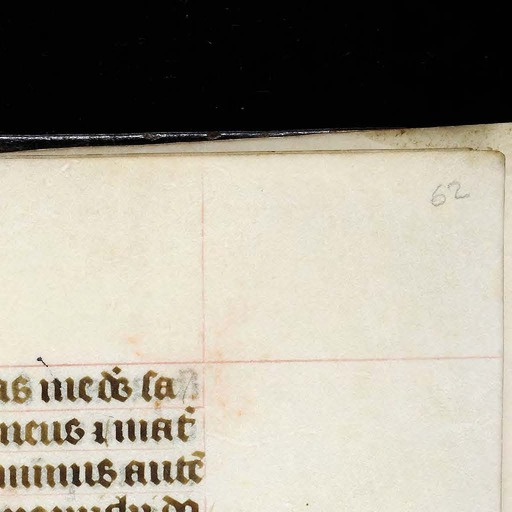 62
as me ds sa
meus ⁊ mat̄
minus autē